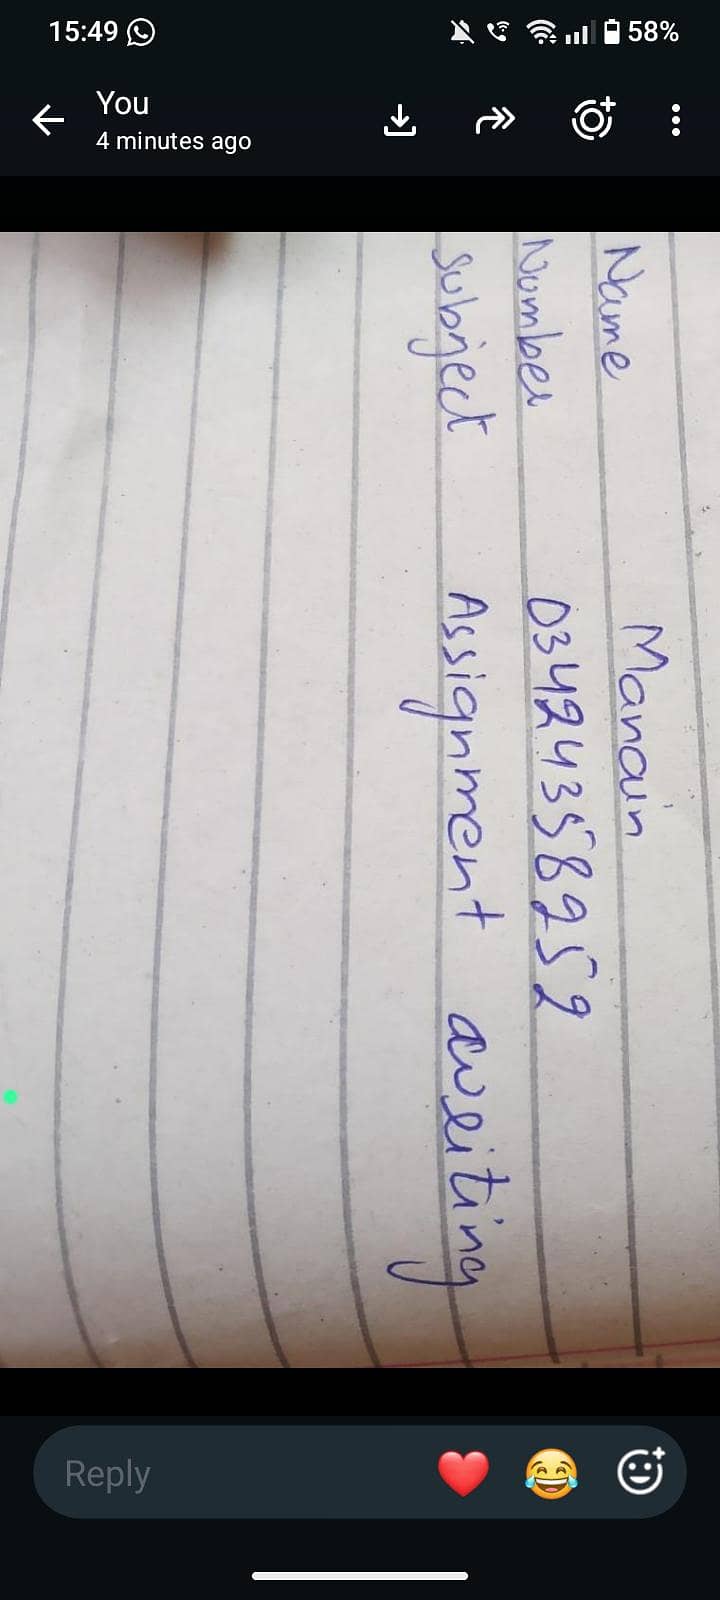 15:49 58%
You
4 minutes ago
Name Manain
Number 03424358252
Subject Assignment writing
Reply